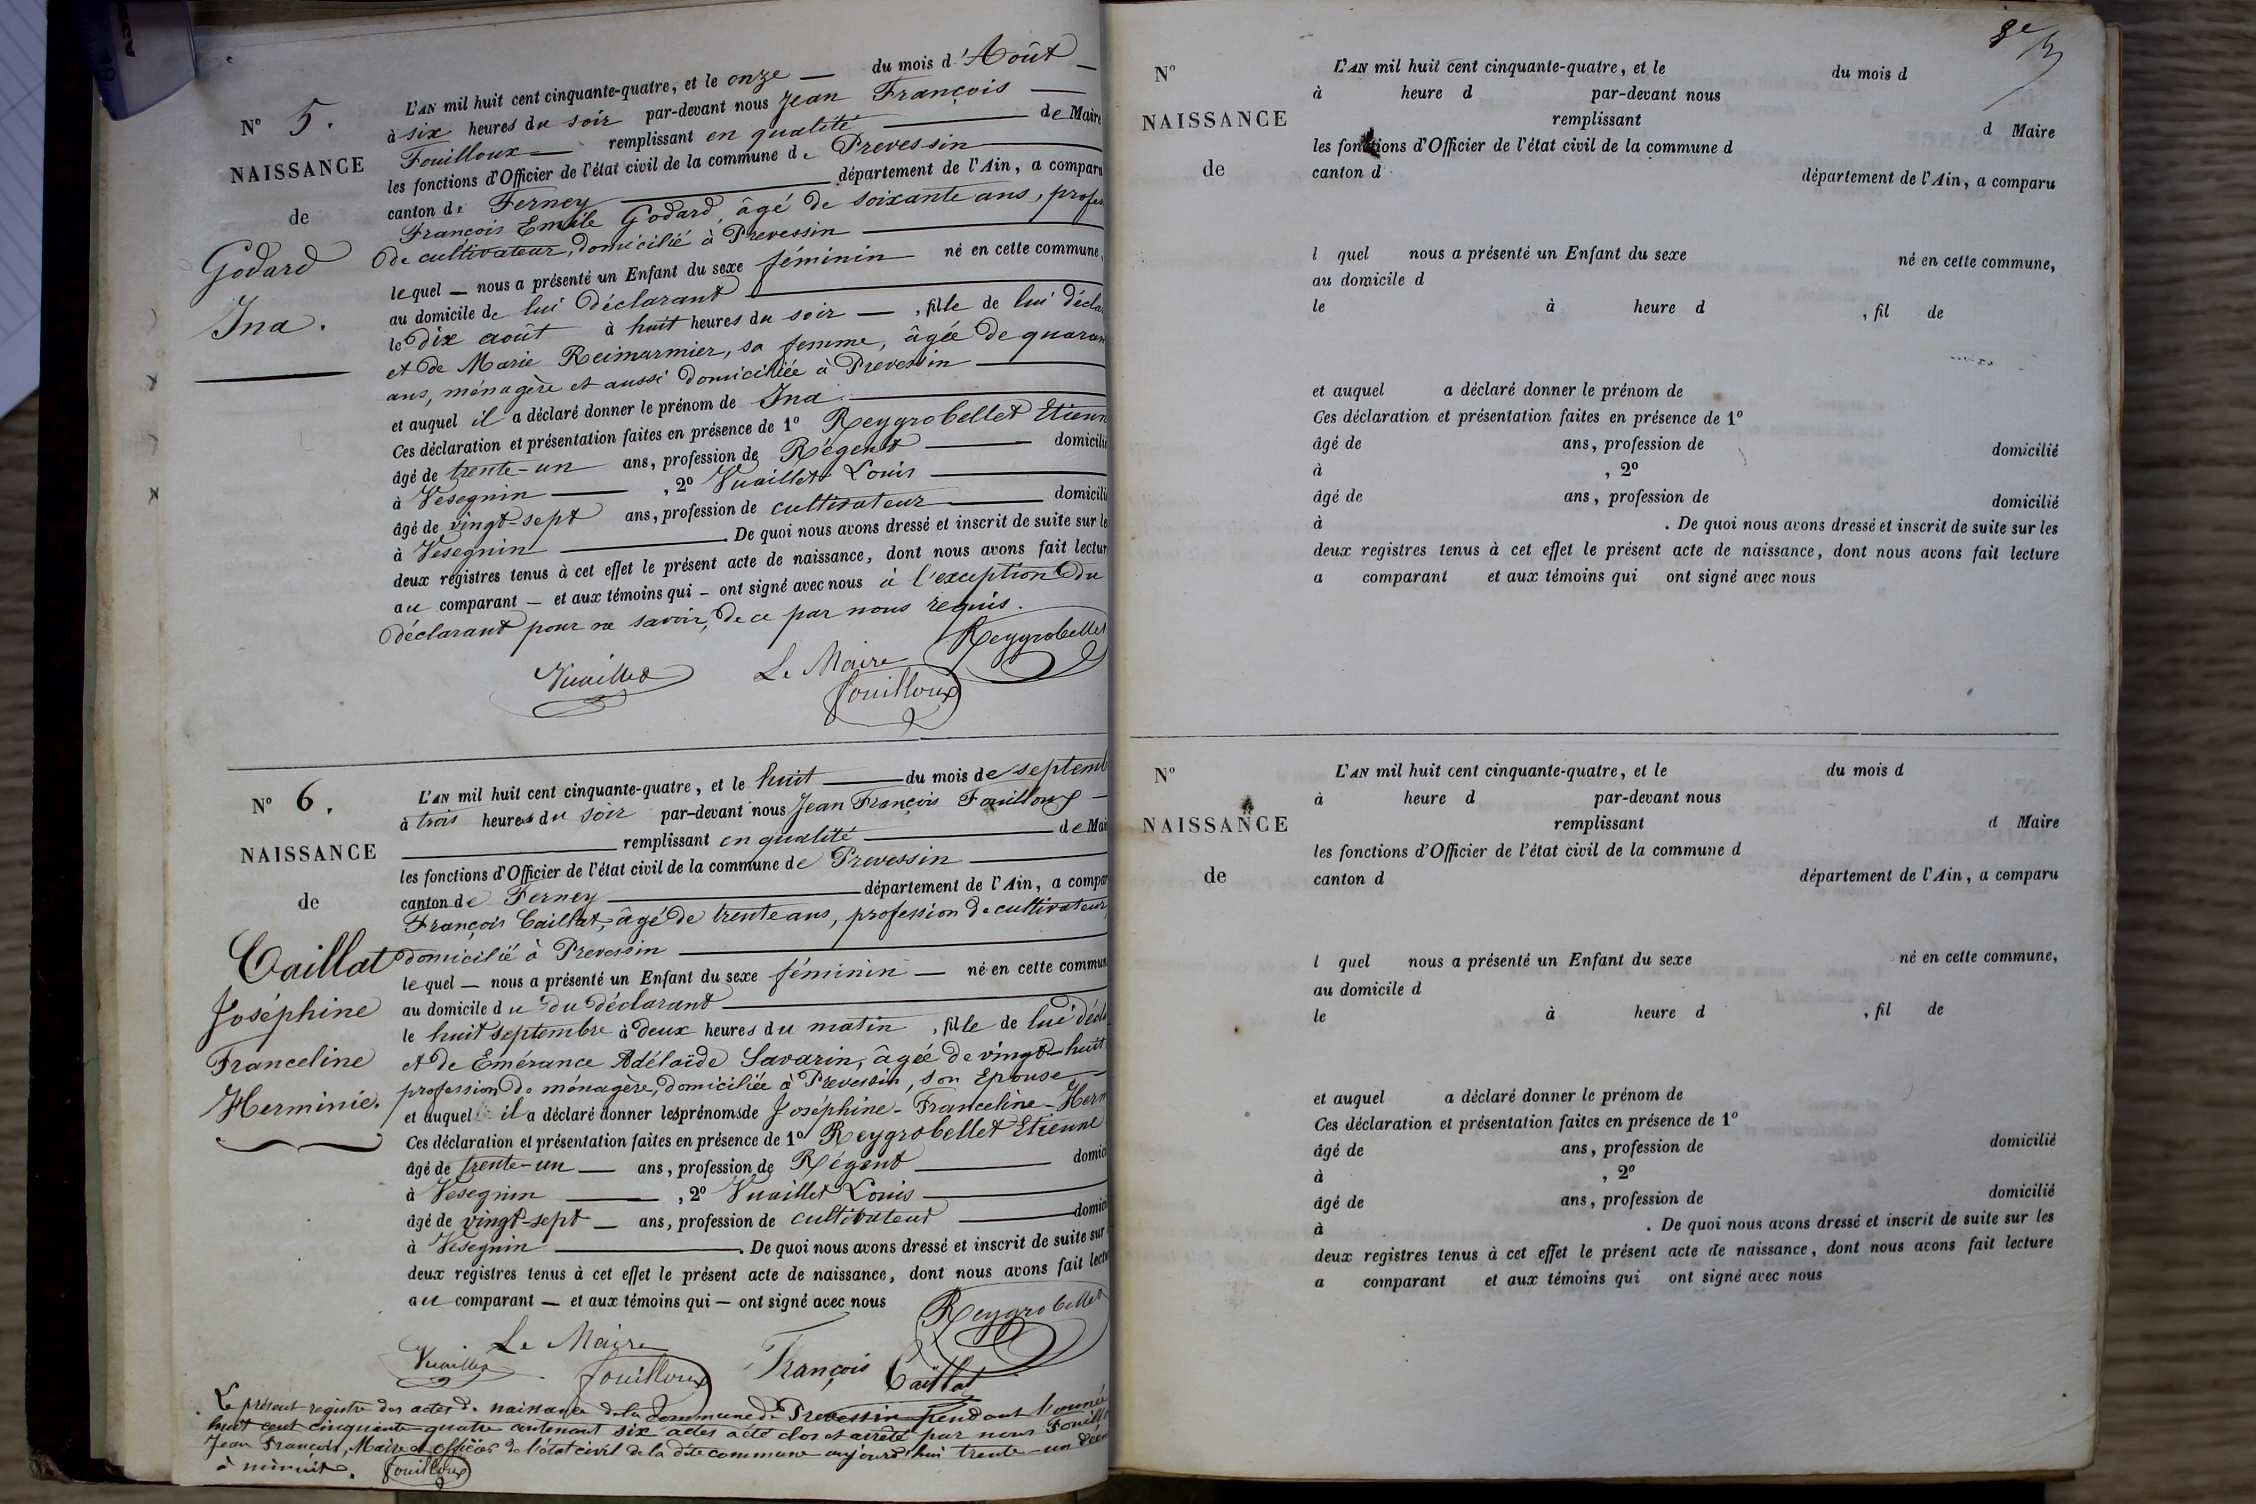 N° 5.
NAISSANCE
de
Godard
Ina.
L'AN mil huit cent cinquante-quatre, et le onze — du mois d'Août —
à six heures du soir par-devant nous Jean François —
Fouilloux — remplissant en qualité — de Maire
les fonctions d'Officier de l'état civil de la commune de Prevessin
canton de Ferney — département de l'Ain, a comparu
François Emile Godard, âgé de soixante ans, profes
de cultivateur, domicilié à Prevessin —
lequel — nous a présenté un Enfant du sexe féminin né en cette commune,
au domicile de lui déclarant —
le dix août à huit heures du soir —, fille de lui décla
et de Marie Reimarmier, sa femme, âgée de quaran
ans, ménagère et aussi domiciliée à Prevessin —
et auquel il a déclaré donner le prénom de Ina. —
Ces déclaration et présentation faites en présence de 1° Reygrobellet Etienn
âgé de trente-un ans, profession de Régent — domicilié
à Vesegnin —, 2° Vuaillet Louis —
âgé de vingt-sept ans, profession de cultivateur — domicili
à Vesegnin — . De quoi nous avons dressé et inscrit de suite sur le
deux registres tenus à cet effet le présent acte de naissance, dont nous avons fait lectur
au comparant — et aux témoins qui — ont signé avec nous à l'exception du
déclarant pour ne savoir, de ce par nous requis.
Reygrobellet
Vuaillet Le Maire
Fouilloux
N° 6.
NAISSANCE
de
Caillat
Joséphine
Franceline
Herminie.
L'AN mil huit cent cinquante-quatre, et le huit — du mois de septemb
à trois heures du soir par-devant nous Jean François Fouilloux —
— remplissant en qualité — de Mai
les fonctions d'Officier de l'état civil de la commune de Prevessin —
canton de Ferney — département de l'Ain, a compar
François Caillat, âgé de trente ans, profession de cultivateur,
domicilié à Prevessin —
lequel — nous a présenté un Enfant du sexe féminin — né en cette commun
au domicile du du déclarant —
le huit septembre à deux heures du matin, fille de lui décla
et de Emérance Adélaïde Savarin, âgée de vingt-huit
profession de ménagère, domiciliée à Prevessin, son Epouse —
et auquel il a déclaré donner les prénoms de Joséphine - Franceline - Herm
Ces déclaration et présentation faites en présence de 1° Reygrobellet Etienne
âgé de trente-un — ans, profession de Régent — domici
à Vesegnin —, 2° Vuaillet Louis —
âgé de vingt-sept — ans, profession de cultivateur — domici
à Vesegnin — . De quoi nous avons dressé et inscrit de suite sur
deux registres tenus à cet effet le présent acte de naissance, dont nous avons fait lectu
au comparant — et aux témoins qui — ont signé avec nous
Reygrobellet
Vuaillet Le Maire
Fouilloux François Caillat
Le présent registre des actes de naissance de la Commune de Prevessin pendant l'année
huit cent cinquante-quatre contenant six actes a été clos et arrêté par nous Fouill
Jean François, Maire et officier de l'état civil de la dite commune aujourd'hui trente-un Déce
à minuit. Fouilloux
N°
NAISSANCE
de
L'AN mil huit cent cinquante-quatre, et le du mois d
à heure d par-devant nous
remplissant d Maire
les fonctions d'Officier de l'état civil de la commune d
canton d département de l'Ain, a comparu
l quel nous a présenté un Enfant du sexe né en cette commune,
au domicile d
le à heure d , fil de
et auquel a déclaré donner le prénom de
Ces déclaration et présentation faites en présence de 1°
âgé de ans, profession de domicilié
à , 2°
âgé de ans, profession de domicilié
à . De quoi nous avons dressé et inscrit de suite sur les
deux registres tenus à cet effet le présent acte de naissance, dont nous avons fait lecture
a comparant et aux témoins qui ont signé avec nous
N°
NAISSANCE
de
L'AN mil huit cent cinquante-quatre, et le du mois d
à heure d par-devant nous
remplissant d Maire
les fonctions d'Officier de l'état civil de la commune d
canton d département de l'Ain, a comparu
l quel nous a présenté un Enfant du sexe né en cette commune,
au domicile d
le à heure d , fil de
et auquel a déclaré donner le prénom de
Ces déclaration et présentation faites en présence de 1°
âgé de ans, profession de domicilié
à , 2°
âgé de ans, profession de domicilié
à . De quoi nous avons dressé et inscrit de suite sur les
deux registres tenus à cet effet le présent acte de naissance, dont nous avons fait lecture
a comparant et aux témoins qui ont signé avec nous